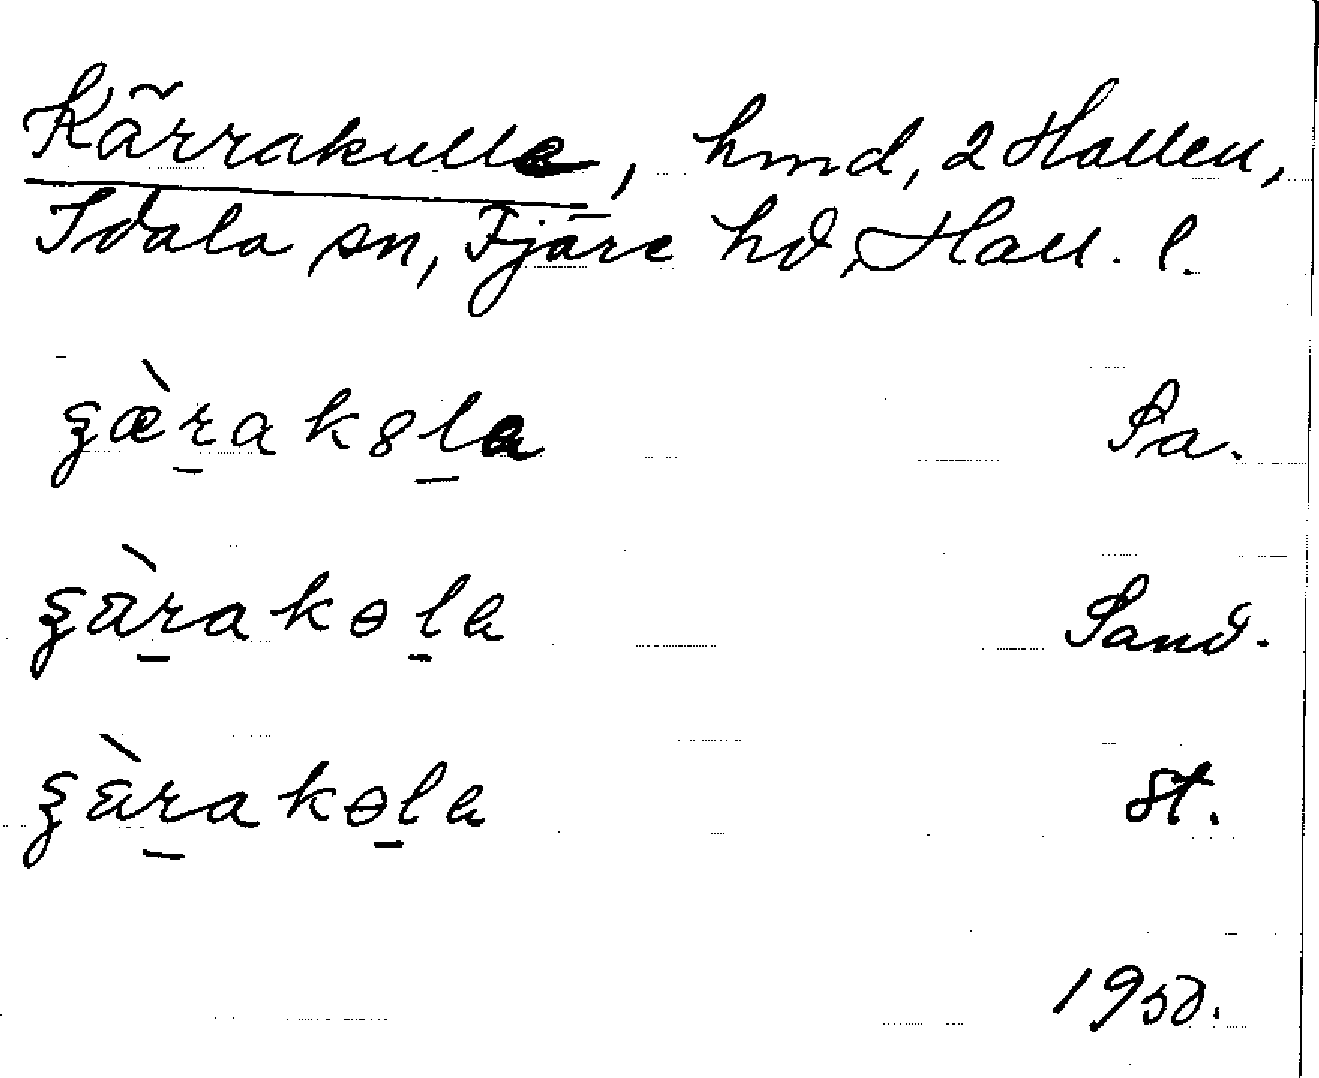 Kärrakulle, hmd, 2 Hallen,
Idala sn, Fjäre hd, Hall. l.
ʓæ̀r̲ak8l̲a Sa.
ʓàr̲akɵl̲a Sand.
ʓàr̲akɵl̲a St.
1950.